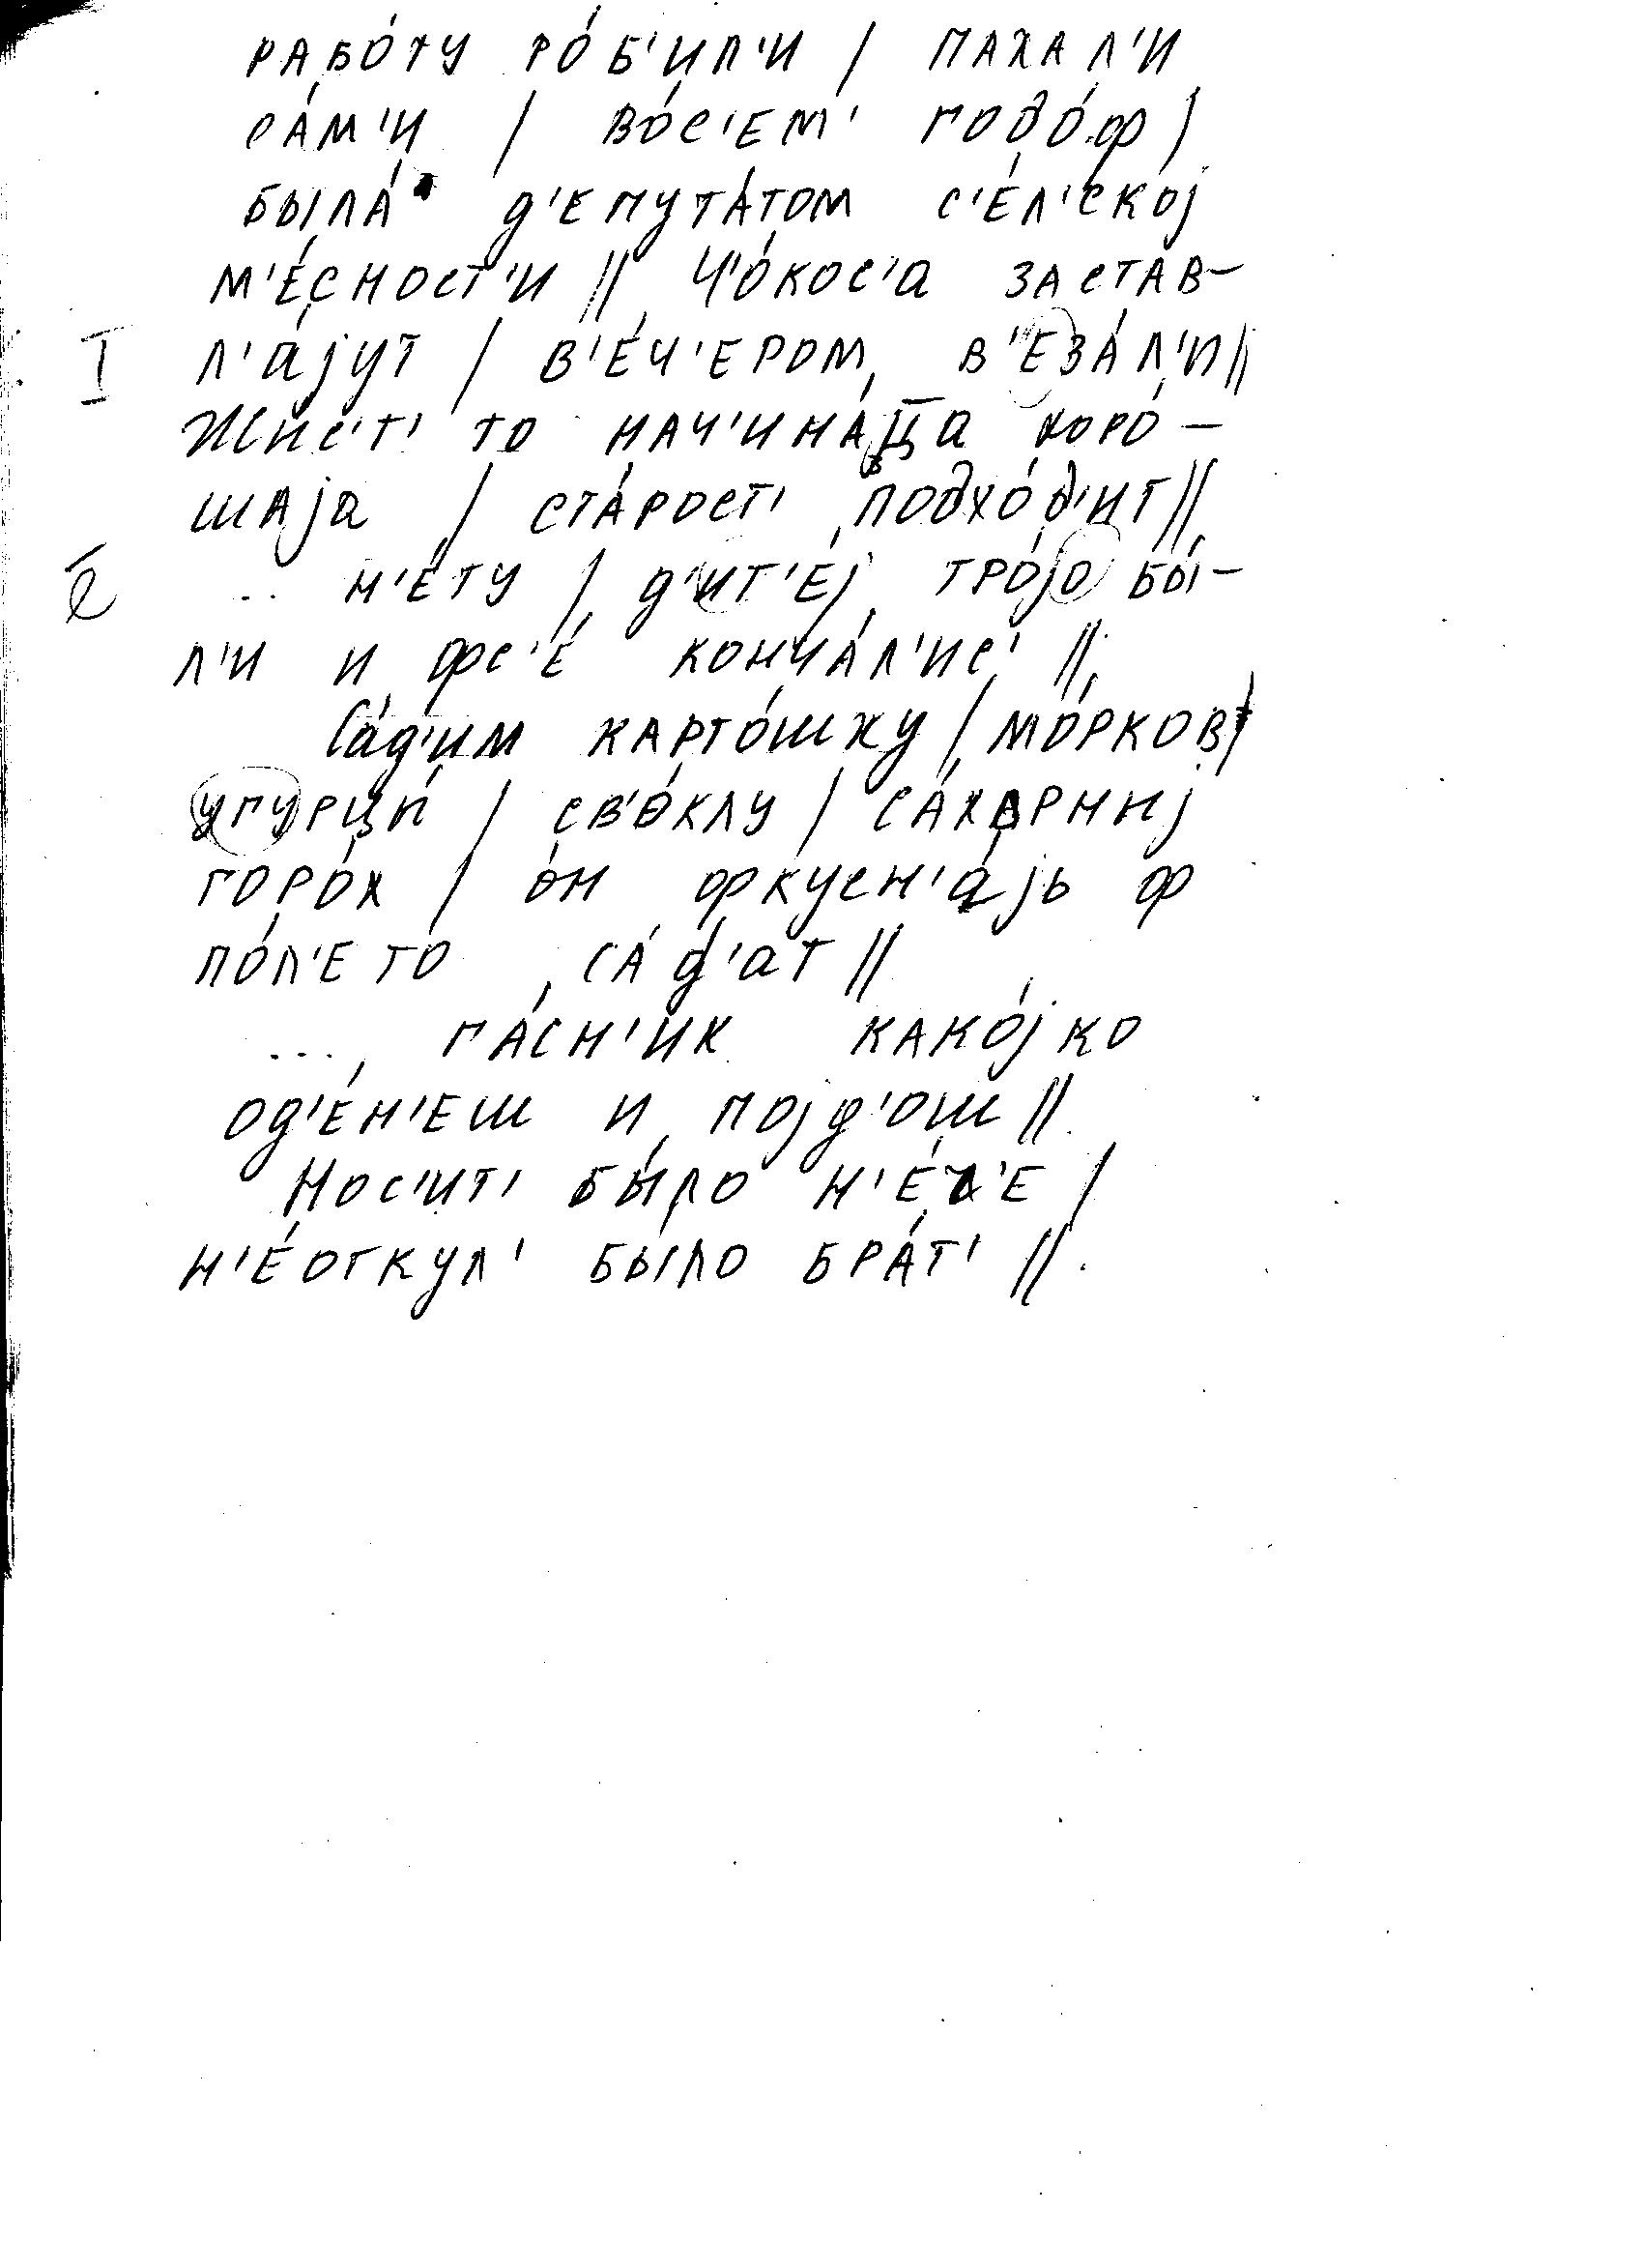 рабо́ту ро́б'ил'и / пахал'и
са́м'и / во́с'ем' годо́ф /
была́ д'епута́том с'е́л'ској
м'е́сност'и // Ч'о́кос'а застав-
I л'а́јут / в'е́ч'ером в'еза́л'и //
Жис'т' то нач'ина́ц̄а хоро́-
шаја / ста́рост' подхо́д'ит //
е̄ .. н'е́ту / д'ит'е́ј тро́јо бы́-
л'и и фс'е́ конча́л'ис' //
Са́д'им карто́шку / мо́рков /
угурцы́ / св'о́клу / са́харниј
горо́х / о́н фкусн'а́јь ф
по́л'е то са́д'ат //
... па́сн'ик како́јко
од'е́н'еш и појд'ош //
Нос'ит' бы́ло н'е́ч'е /
н'е́откул' было бра́т' //.